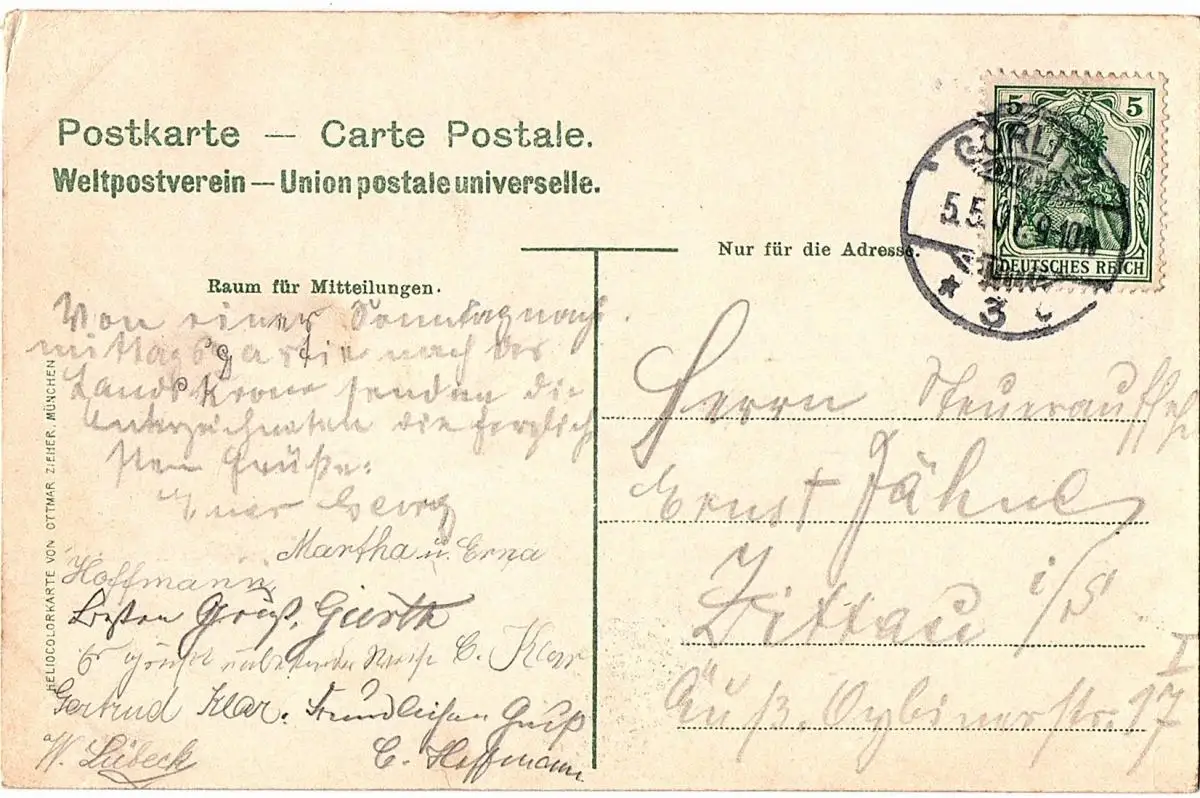 Postkarte — Carte Postale.
Weltpostverein — Union postale universelle.
Nur für die Adresse.
Raum für Mitteilungen.
5 5
DEUTSCHES REICH
GÖRLITZ
5.5. 9-10N
* 3 c
Von einer Sonntagnach
mittagspartie nach der
Landskrone senden die
Unterzeichneten die herzlich
sten Grüße:
Euer Georg
Martha u. Erna
Hoffmann
Besten Gruß, Gierth
C. Klar
Gertrud Klar. Freundlichen Gruß
W. Lübeck C. Hoffmann
Herrn Steueraufseh
Ernst Jähne
Zittau i/S
Äuß. Oybinerstr. 17 I
HELIOCOLORKARTE VON OTTMAR ZIEHER, MÜNCHEN